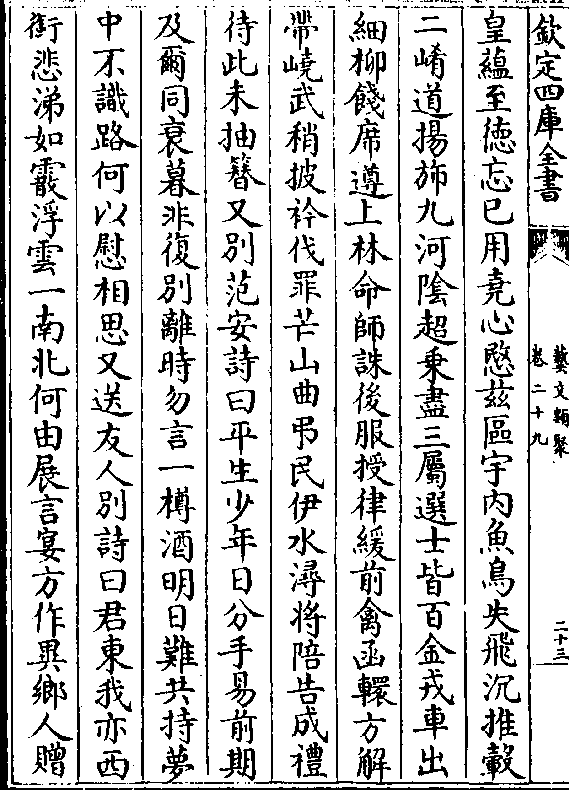 欽定四庫全書
藝文類聚
卷二十九
二十三
皇蘊至徳忘已用堯心愍兹區宇内魚鳥失飛沉推轂
二崤道揚斾九河隂超乗盡三屬選士皆百金戎車出
細栁餞席遵上林命師誅後服授律緩前禽函轘方解
帶嶢武稍披衿伐罪芒山曲弔民伊水潯将陪告成禮
待此未抽簪又别范安詩曰平生少年日分手易前期
及爾同衰暮非復别離時勿言一樽酒明日難共持夢
中不識路何以慰相思又送友人别詩曰君東我亦西
銜悲涕如霰浮雲一南北何由展言宴方作異鄉人贈